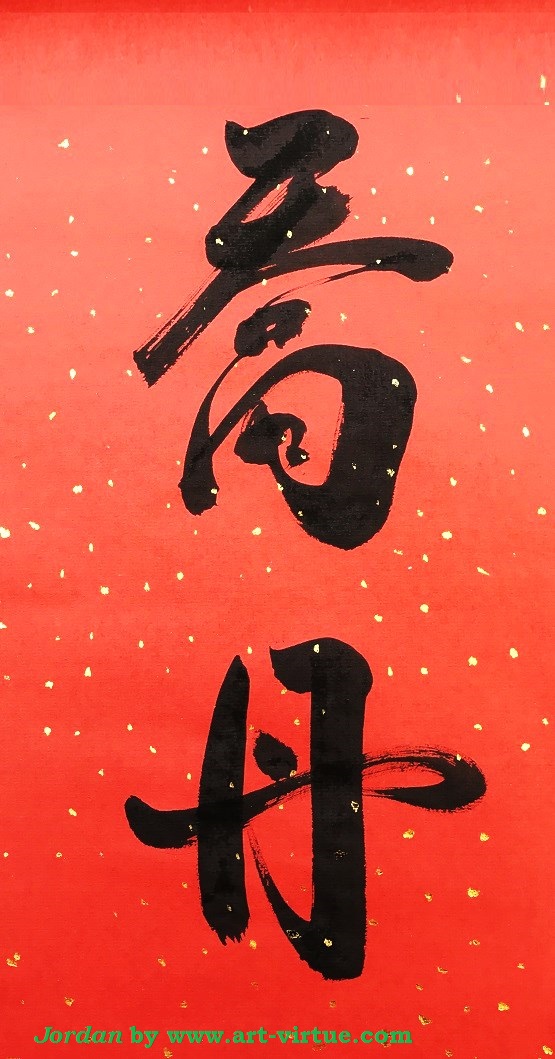 喬丹
Jordan by www.art-virtue.com